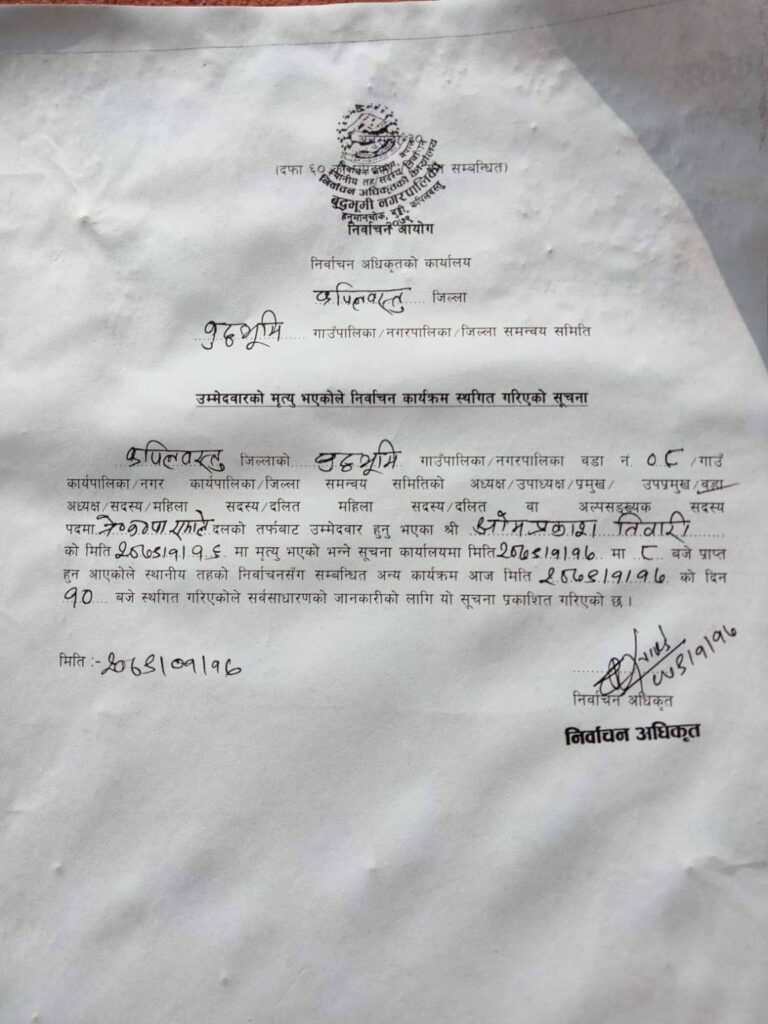 अनुसूची-३०
(दफा ६० को सम्बन्धित)
निर्वाचन अधिकृतको कार्यालय
बुद्धभूमी नगरपालिका
हनुमानचोक, बुड्डी, कपिलवस्तु
२०७९
निर्वाचन आयोग
निर्वाचन अधिकृतको कार्यालय
कपिलवस्तु जिल्ला
बुद्धभूमि गाउँपालिका/नगरपालिका/जिल्ला समन्वय समिति
उम्मेदवारको मृत्यु भएकोले निर्वाचन कार्यक्रम स्थगित गरिएको सूचना
कपिलवस्तु जिल्लाको बुद्धभूमि गाउँपालिका/नगरपालिका वडा नं. ०८ /गाउँ
कार्यपालिका/नगर कार्यपालिका/जिल्ला समन्वय समितिको अध्यक्ष/उपाध्यक्ष/प्रमुख/ उपप्रमुख/वडा
अध्यक्ष/सदस्य/महिला सदस्य/दलित महिला सदस्य/दलित वा अल्पसङ्ख्यक सदस्य
पदमा ने.क.पा एमाले दलको तर्फबाट उम्मेदवार हुनु भएका श्री ओम प्रकाश तिवारी
को मिति २०७९।१।१६ मा मृत्यु भएको भन्ने सूचना कार्यालयमा मिति २०७९।१।१७ मा ८ बजे प्राप्त
हुन आएकोले स्थानीय तहको निर्वाचनसँग सम्बन्धित अन्य कार्यक्रम आज मिति २०७९।१।१७ को दिन
१० बजे स्थगित गरिएकोले सर्वसाधारणको जानकारीको लागि यो सूचना प्रकाशित गरिएको छ ।
मिति :- २०७९।०१।१७
०७९।१।१७
निर्वाचन अधिकृत
निर्वाचन अधिकृत